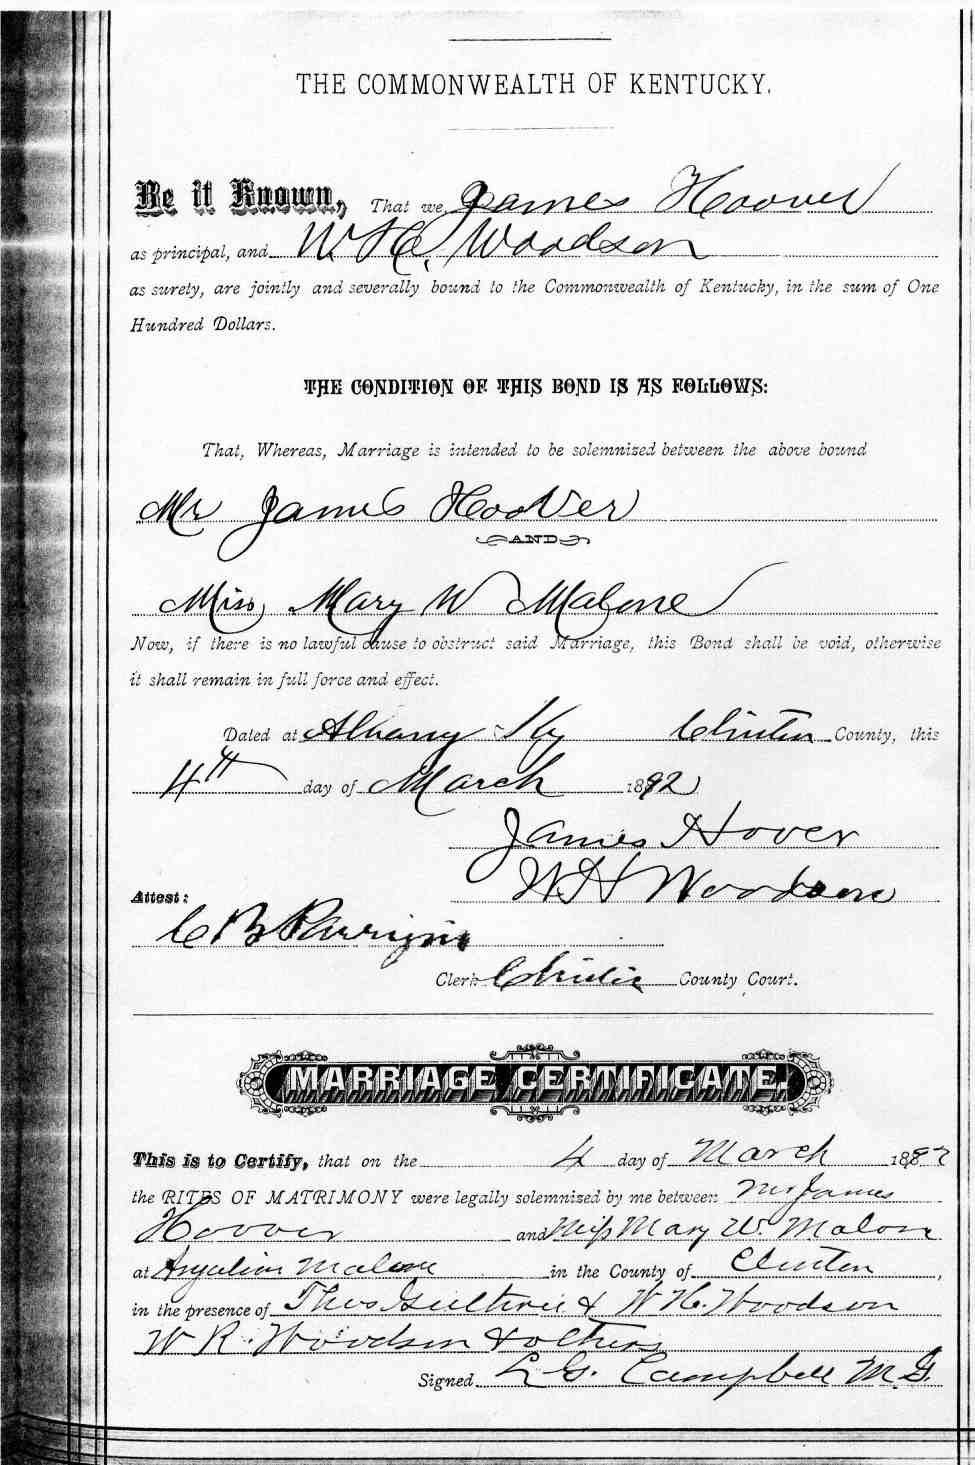 THE COMMONWEALTH OF KENTUCKY.
Be it Known, That we, James Hoover
as principal, and W. H. Woodson
as surety, are jointly and severally bound to the Commonwealth of Kentucky, in the sum of One
Hundred Dollars.
THE CONDITION OF THIS BOND IS AS FOLLOWS:
That, Whereas, Marriage is intended to be solemnized between the above bound
Mr James Hoover
AND
Miss Mary W Malone
Now, if there is no lawful cause to obstruct said Marriage, this Bond shall be void, otherwise
it shall remain in full force and effect.
Dated at Albany Ky Clinton County, this
4th day of March 1892
James Hover
W H Woodson
Attest:
C B Parrigin
Clerk Clinton County Court.
MARRIAGE CERTIFICATE.
This is to Certify, that on the 4 day of March 1892
the RITES OF MATRIMONY were legally solemnized by me between Mr James
Hoover and Miss Mary W. Malone
at Malone in the County of Clinton,
in the presence of Thos Guthrie & W H. Woodson
W R. Woodson & others
Signed L G. Campbell M. G.